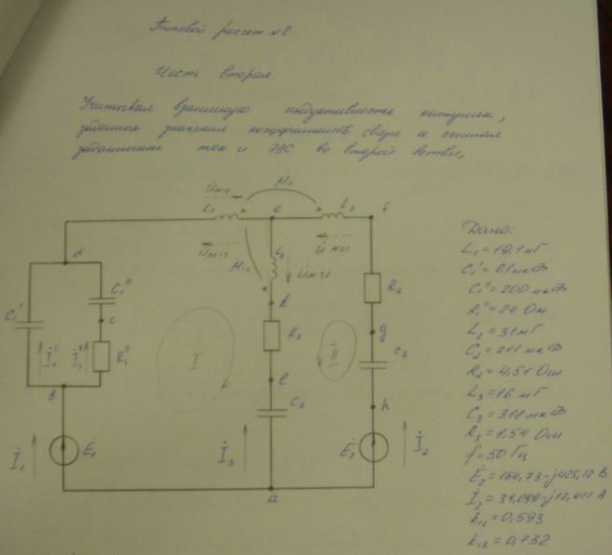 Типовой расчет №2
Часть вторая
Учитывая взаимную индуктивность катушек,
задалась значения коэффициентов связи и считая
заданными ток и ЭДС во второй ветви,
M₁₂
U̇м12
L₁ e L₂ f
U̇м13 U̇м21
M₁₃ L₃ U̇м31
d
C₁' C₁'' k R₂
c
İ₁' İ₁'' R₁'' I R₃ II g
C₂
b l
h
İ₁ E₁ İ₃ C₃ Ė₂ İ₂
a
Дано:
L₁=19,1мГ
C₁'=61мкФ
C₁''=200 мкФ
R₁''=20 Ом
L₂=31мГ
C₂=211 мкФ
R₂=4,51 Ом
L₃=16 мГ
C₃=318 мкФ
R₃=1,54 Ом
f=50 Гц
Ė₂=164,73-j425,12 В
İ₂=34,099-j12,411 А
k₁₂=0,593
k₁₃=0,732